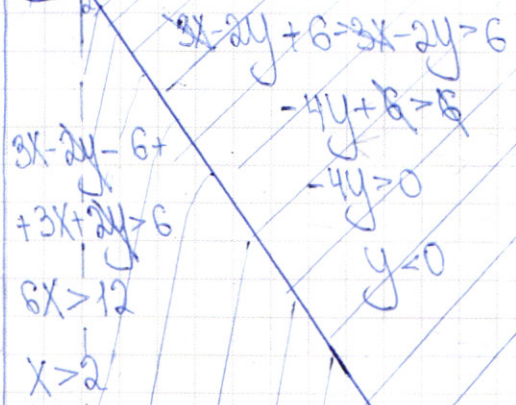 3x-2y+6-3x-2y>6
-4y+6>6
-4y>0
y<0
3x-2y-6+
+3x+2y>6
6x>12
x>2